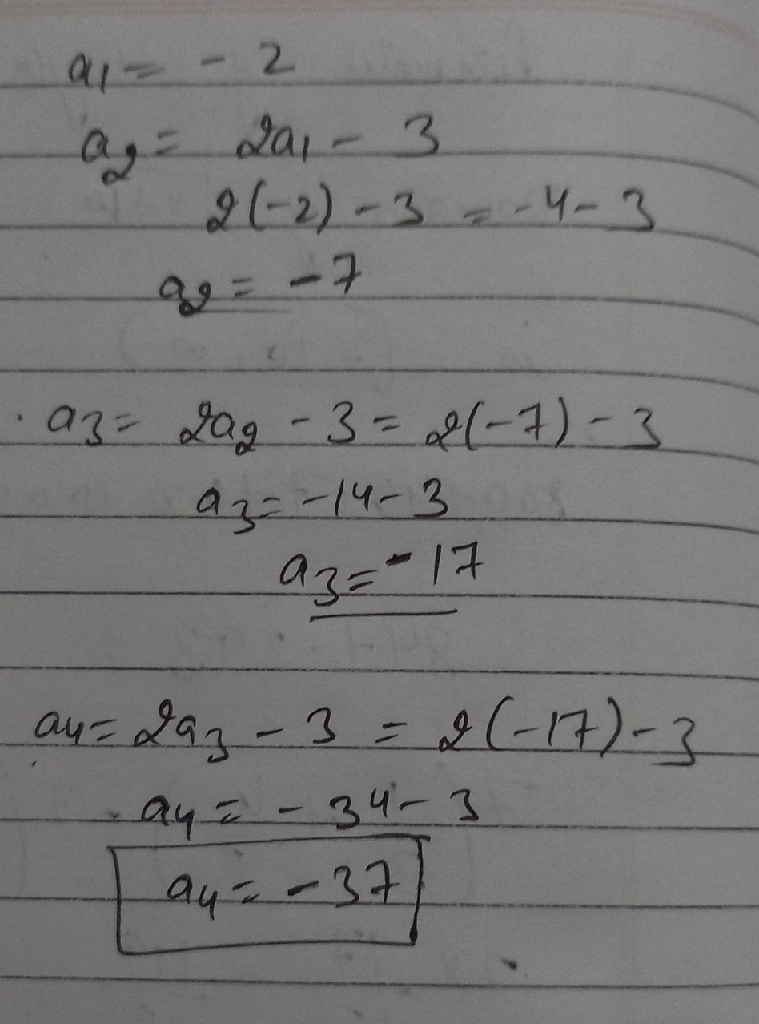 a₁ = -2
a₂ = 2a₁ - 3
2(-2) - 3 = -4-3
a₂ = -7
a₃ = 2a₂ - 3 = 2(-7) - 3
a₃ = -14-3
a₃ = -17
a₄ = 2a₃ - 3 = 2(-17)-3
a₄ = -34-3
a₄ = -37